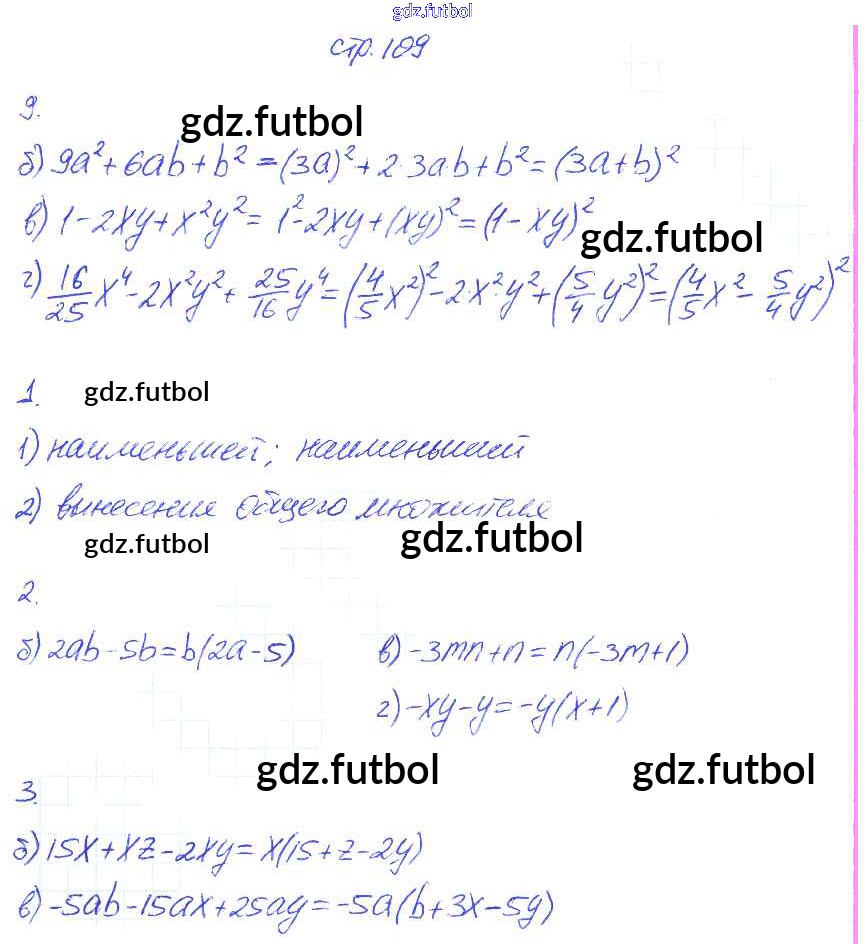 gdz.futbol
стр. 109
9.
gdz.futbol
б) 9a² + 6ab + b² = (3a)² + 2·3ab + b² = (3a+b)²
в) 1 - 2xy + x²y² = 1² - 2xy + (xy)² = (1 - xy)²
gdz.futbol
г) 16/25 x⁴ - 2x²y² + 25/16 y⁴ = (4/5 x²)² - 2·x²·y² + (5/4 y²)² = (4/5 x² - 5/4 y²)²
1. gdz.futbol
1) наименьшей; наименьший
2) вынесения общего множителя
gdz.futbol gdz.futbol
2.
б) 2ab - 5b = b(2a - 5) в) -3mn + n = n(-3m + 1)
г) -xy - y = -y(x + 1)
gdz.futbol gdz.futbol
3.
б) 15x + xz - 2xy = x(15 + z - 2y)
в) -5ab - 15ax + 25ay = -5a(b + 3x - 5y)